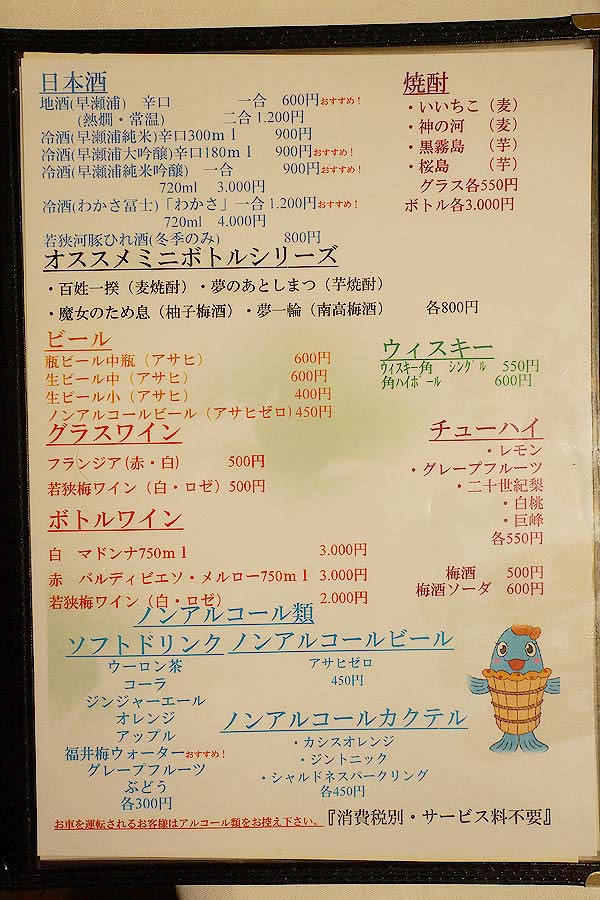 日本酒
地酒(早瀬浦)　辛口　一合　600円おすすめ！
(熱燗・常温)　二合 1.200円
冷酒(早瀬浦純米)辛口300ｍｌ　900円
冷酒(早瀬浦大吟醸)辛口180ｍｌ　900円おすすめ！
冷酒(早瀬浦純米吟醸)　一合　900円おすすめ！
720ml　3.000円
冷酒(わかさ冨士)「わかさ」一合 1.200円おすすめ！
720ml　4.000円
若狭河豚ひれ酒(冬季のみ)　800円
焼酎
・いいちこ（麦）
・神の河　（麦）
・黒霧島　（芋）
・桜島　（芋）
グラス各550円
ボトル各3.000円
オススメミニボトルシリーズ
・百姓一揆（麦焼酎）・夢のあとしまつ（芋焼酎）
・魔女のため息（柚子梅酒）・夢一輪（南高梅酒）　各800円
ビール
瓶ビール中瓶（アサヒ）　600円
生ビール中（アサヒ）　600円
生ビール小（アサヒ）　400円
ノンアルコールビール（アサヒゼロ)450円
ウィスキー
ｳｨｽｷｰ角　ｼﾝｸﾞﾙ　550円
角ﾊｲﾎﾞｰﾙ　600円
グラスワイン
フランジア(赤・白)　500円
若狭梅ワイン（白・ロゼ）500円
チューハイ
・レモン
・グレープフルーツ
・二十世紀梨
・白桃
・巨峰
各550円
梅酒　500円
梅酒ソーダ　600円
ボトルワイン
白　マドンナ750ｍｌ　3.000円
赤　バルディビエソ・メルロー750ｍｌ　3.000円
若狭梅ワイン（白・ロゼ）　2.000円
ノンアルコール類
ソフトドリンク
ウーロン茶
コーラ
ジンジャーエール
オレンジ
アップル
福井梅ウォーターおすすめ！
グレープフルーツ
ぶどう
各300円
ノンアルコールビール
アサヒゼロ
450円
ノンアルコールカクテル
・カシスオレンジ
・ジントニック
・シャルドネスパークリング
各450円
お車を運転されるお客様はアルコール類をお控え下さい。
『消費税別・サービス料不要』